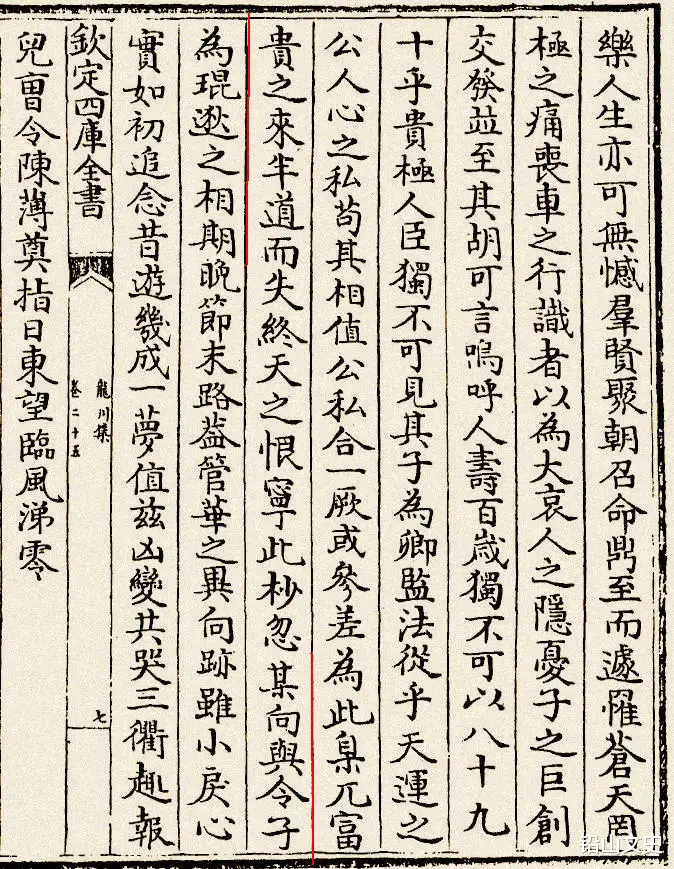 樂人生亦可無憾羣賢聚朝召命鼎至而遽罹蒼天罔
極之痛喪車之行識者以為大哀人之隱憂子之巨創
交發並至其胡可言嗚呼人壽百歲獨不可以八十九
十乎貴極人臣獨不可見其子為卿監法從乎天運之
公人心之私苟其相值公私合一厥或參差為此臬兀富
貴之來半道而失終天之恨寧此杪忽某向與令子
為琨逖之相期晚節末路葢管華之異向跡雖小戾心
實如初追念昔遊幾成一夢值兹凶變共哭三衢趣報
欽定四庫全書
龍川集
卷二十五
七
兒曹令陳薄奠指日東望臨風涕零
铅山文史